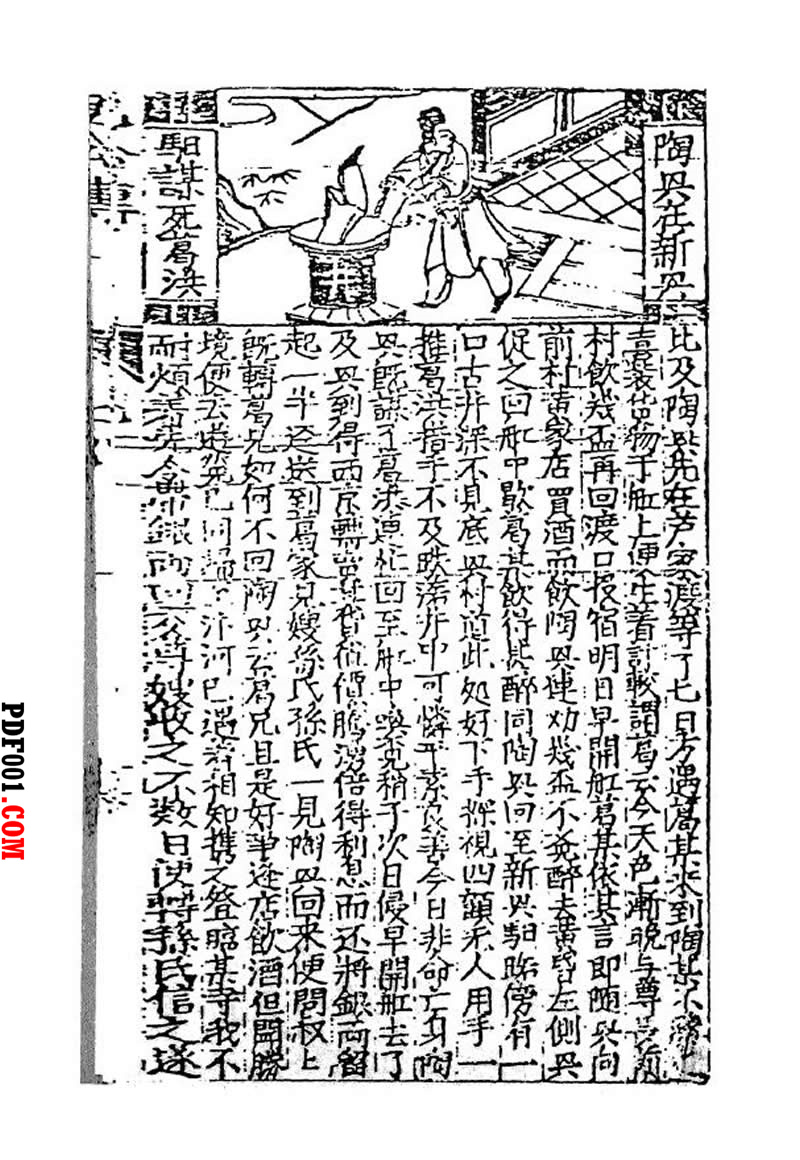 陶興在新興
駔謀死葛洪
比及陶興先在芦家渡等了七日方遇葛某來到陶某不勝
喜裝貨物于舡上便生着計較謂葛云今天色漸晚与尊長前
村飲幾盃再回渡口投宿明日早開舡葛某依其言即随興向
前村黄家店買酒而飲陶興連劝幾盃不竟醉去黄昏左側興
促之回舡中歇葛某飲得甚醉同陶興回至新興駔路傍有一
口古井深不見底興村道此処好下手探視四顧禾人用手一
推葛洪措手不及跌落井中可憐平素良善今日非命亡身陶
興既謀了葛洪連忙回至舡中喚竟稍子次日侵早開舡去了
及興到得西京轉賣其貨值價騰湧倍得利息而还將銀両留
起一半迳送到葛家見嫂孫氏孫氏一見陶興回来便問叔上
既轉葛兄如何不回陶興云葛兄且是好事逢店飲酒但聞勝
境便去遊覧已同歸至汴河巳遇着相知携之登臨某寺我不
耐煩着先令帯銀両回公尊嫂收之不数日便轉孫氏信之遂
PDF001.COM